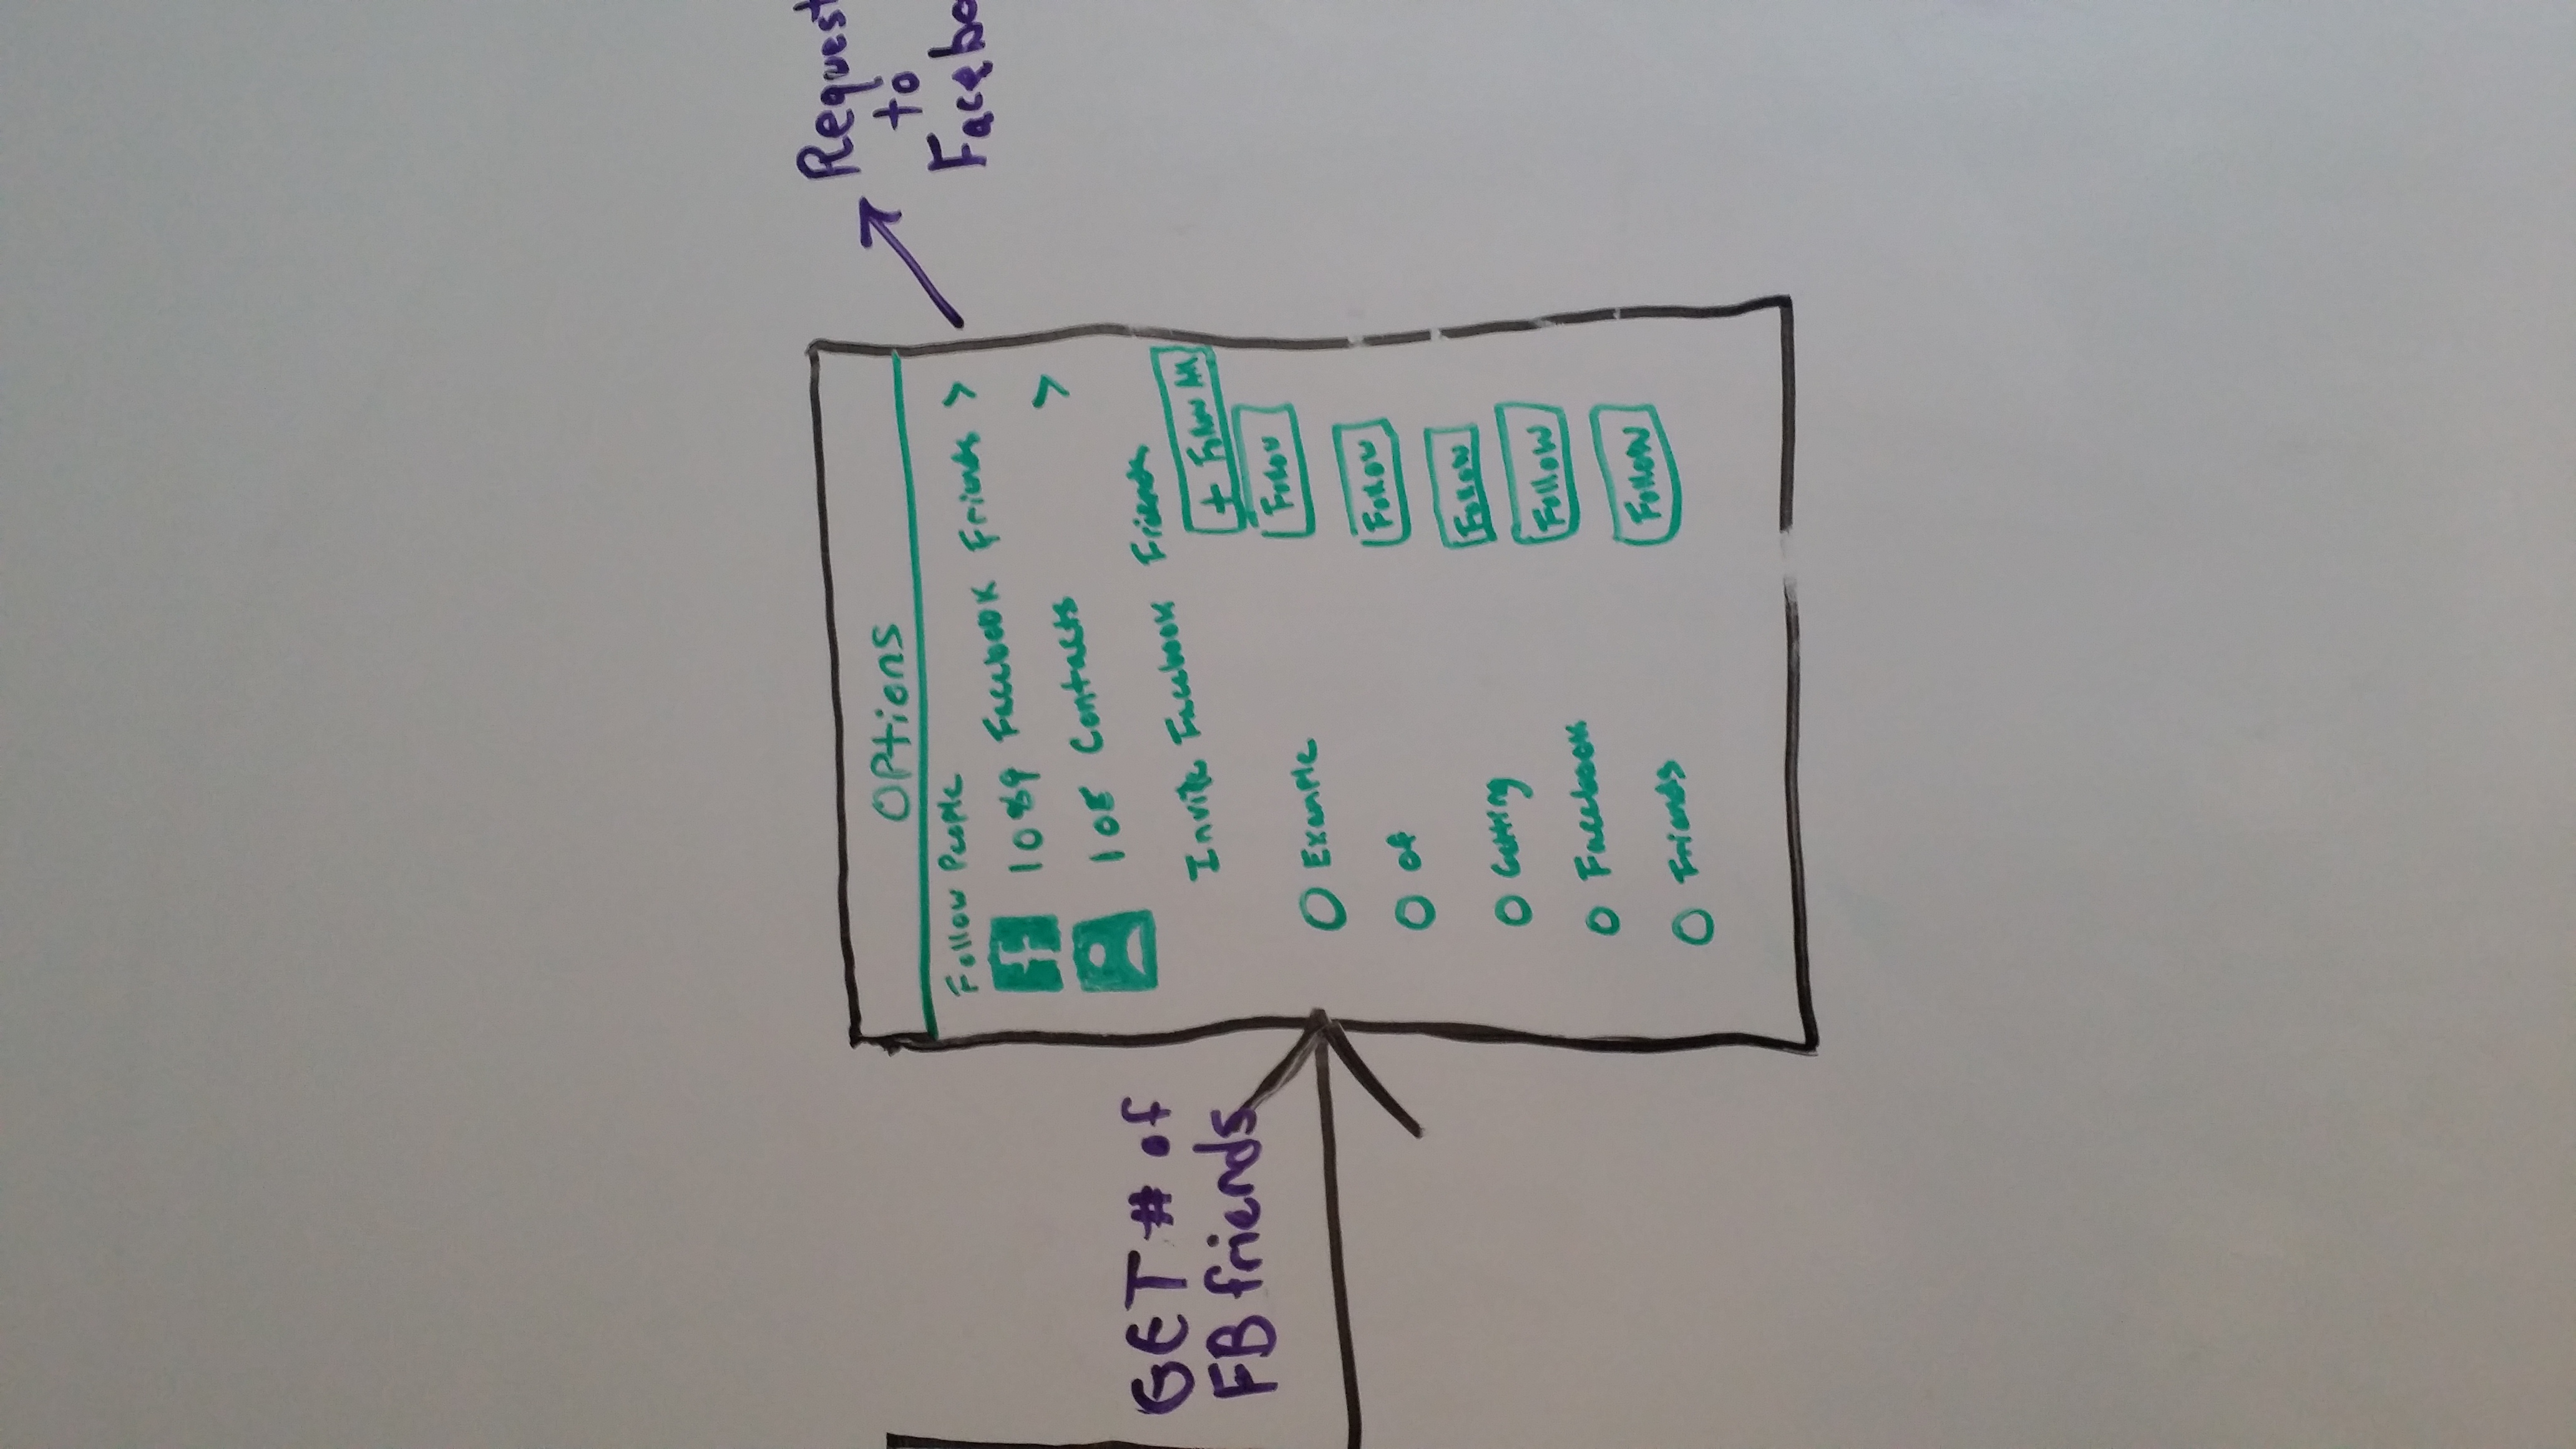 Options
Follow People
f
1089 Facebook Friends >
108 Contacts >
Invite Facebook Friends
+ Follow All
Example Follow
of Follow
Getting Follow
Facebook Follow
Friends Follow
GET # of
FB friends
Request
to
Facebo